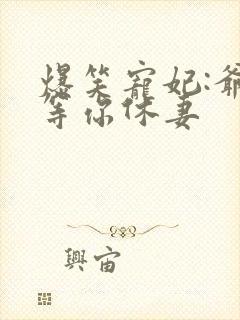 爆笑寵妃:爺
等你休妻
興宙